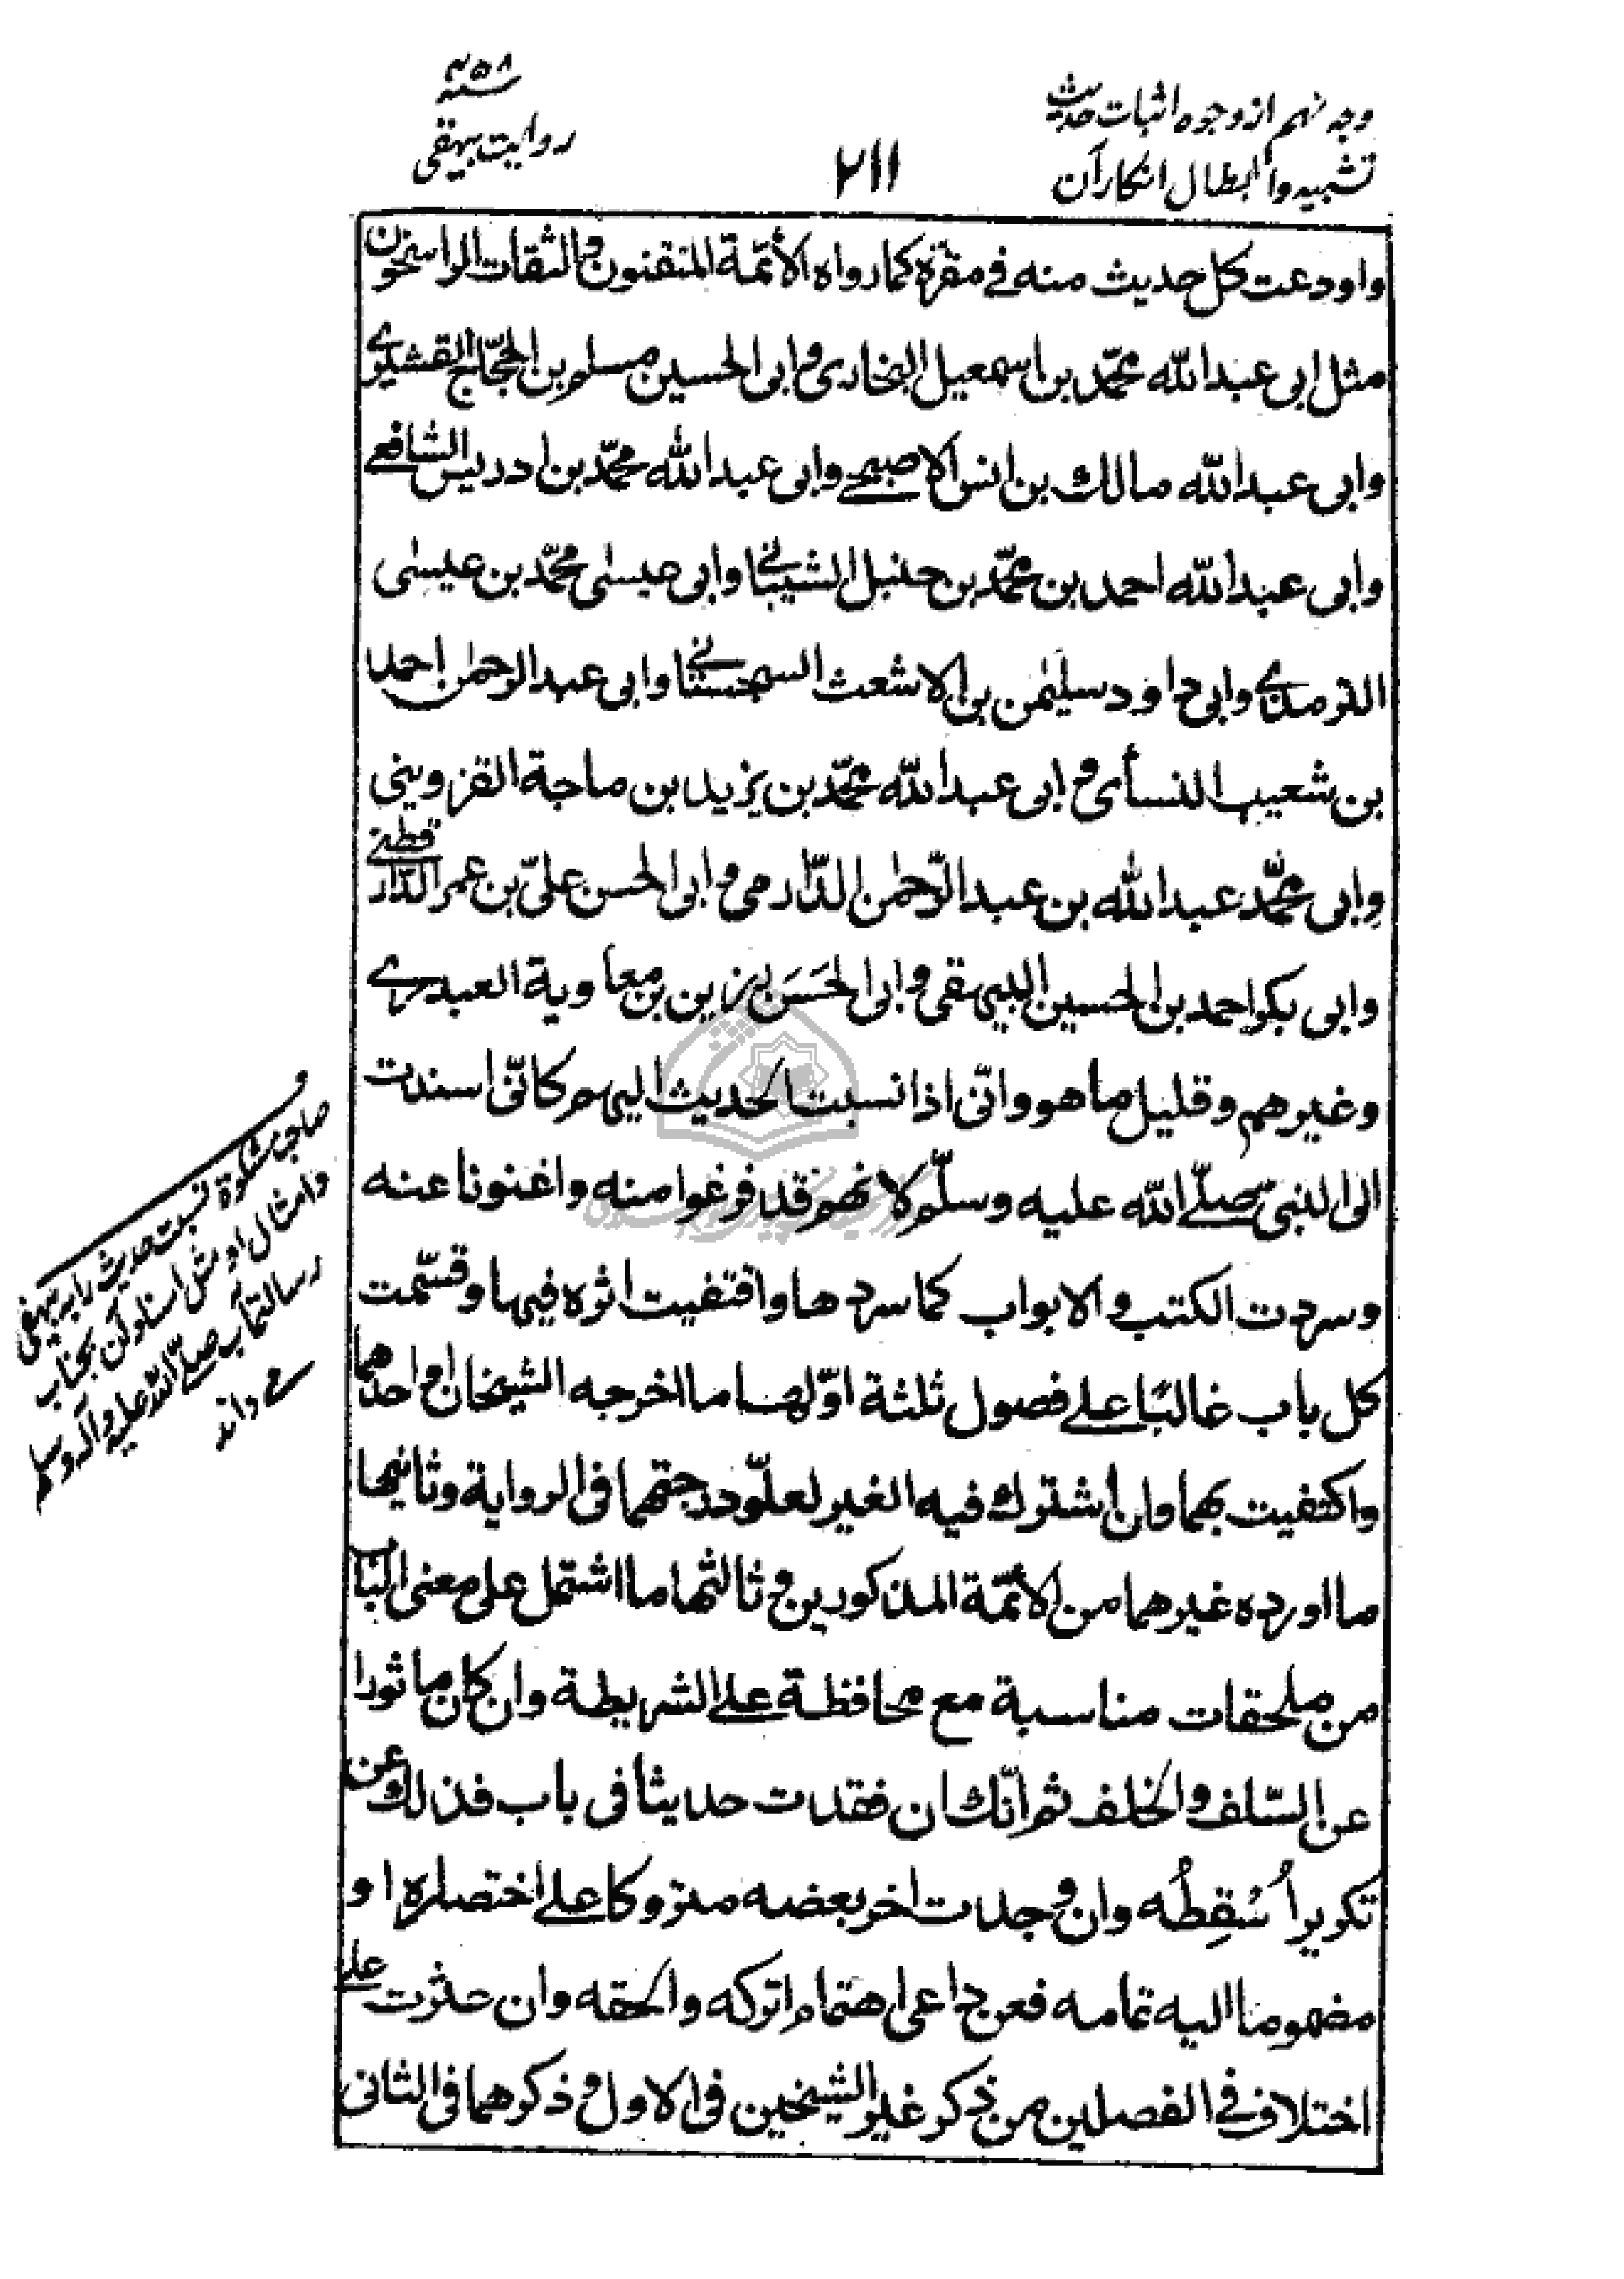 وجه نهم از وجوه اثبات حدیث
تشبیه وابطال انکار آن
۲۱۱
۴۵۸ سنه
روایت بیهقی
واودعت كل حديث منه فے مقره كما رواه الأئمّة المتقنون والثقات الراسخون
مثل ابى عبد الله محمّد بن اسمعيل البخارى وابى الحسين مسلم بن الحجّاج القشيرے
وابى عبد الله مالك بن انس الاصبحے وابى عبد الله محمّد بن ادريس الشافعے
وابى عبد الله احمد بن محمّد بن حنبل الشيبانے وابى عيسٰى محمّد بن عيسٰى
الترمذے وابى داود سليمٰن بن الاشعث السجستانے وابى عبد الرحمٰن احمد
بن شعيب النسأى وابى عبد الله محمّد بن يزيد بن ماجة القزوينى
وابى محمّد عبد الله بن عبد الرّحمٰن الدّارمى وابى الحسن علىّ بن عمر الدّارقطنے
وابى بكر احمد بن الحسين البيهقى وابى الحَسَن رزين بن معاوية العبدرے
وغيرهم وقليل ما هو وانّى اذا نسبت الحديث اليهم كانّى اسندت
الى النبىّ صلّے الله عليه وسلّم لانهم قد فرغوا منه واغنونا عنه
وسردت الكتب والابواب كما سردها واقتفيت اثره فيها وقسّمت
كل باب غالبًا علے فصول ثلثة اوّلها ما اخرجه الشيخان او احدهما
واكتفيت بهما وان اشترك فيه الغير لعلّو درجتهما فى الرواية وثانيها
ما اورده غيرهما من الأئمّة المذكورين وثالثها ما اشتمل على معنى الباب
من ملحقات مناسبة مع محافظة علے الشريطة وان كان ماثورا
عن السّلف والخلف ثم انّك ان فقدت حديثا فى باب فذلك عن
تكرير اُسْقِطُه وان وجدت اخر بعضه متروكا علے اختصاره او
مضموما اليه تمامه فعن داعى اهتمام اتركه والحقه وان عثرت علے
اختلاف فے الفصلين من ذكر غير الشيخين فى الاول وذكرهما فى الثانى
و
صاحب مشکوة نسبت حدیث را به بیهقی
وامثال او مثل اسناد آن بجناب
رسالتمآب صلّے الله علیه وآله وسلم
مے داند